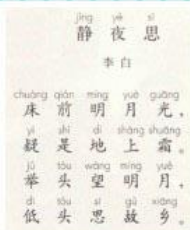 jìng yè sī
静夜思
李白
chuáng qián míng yuè guāng
床前明月光，
yí shì dì shàng shuāng
疑是地上霜。
jǔ tóu wàng míng yuè
举头望明月，
dī tóu sī gù xiāng
低头思故乡。